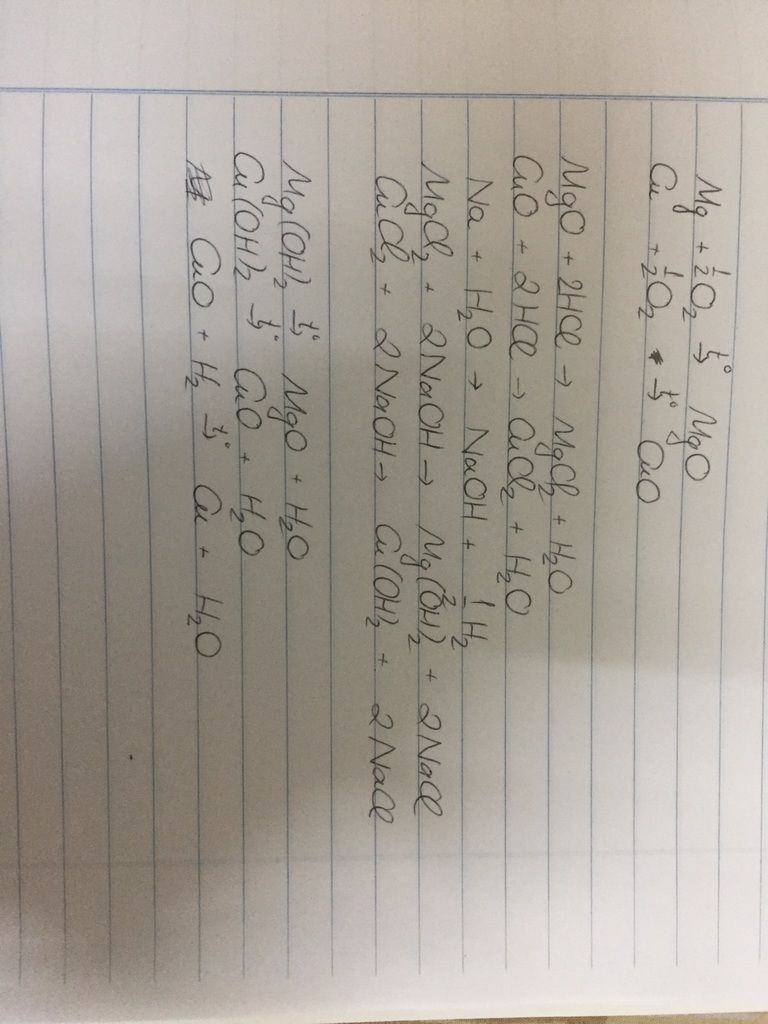 Mg + 1/2 O₂ →t° MgO
Cu + 1/2 O₂ →t° CuO
MgO + 2HCl → MgCl₂ + H₂O
CuO + 2HCl → CuCl₂ + H₂O
Na + H₂O → NaOH + 1/2 H₂
MgCl₂ + 2NaOH → Mg(OH)₂ + 2NaCl
CuCl₂ + 2NaOH → Cu(OH)₂ + 2NaCl
Mg(OH)₂ →t° MgO + H₂O
Cu(OH)₂ →t° CuO + H₂O
CuO + H₂ →t° Cu + H₂O